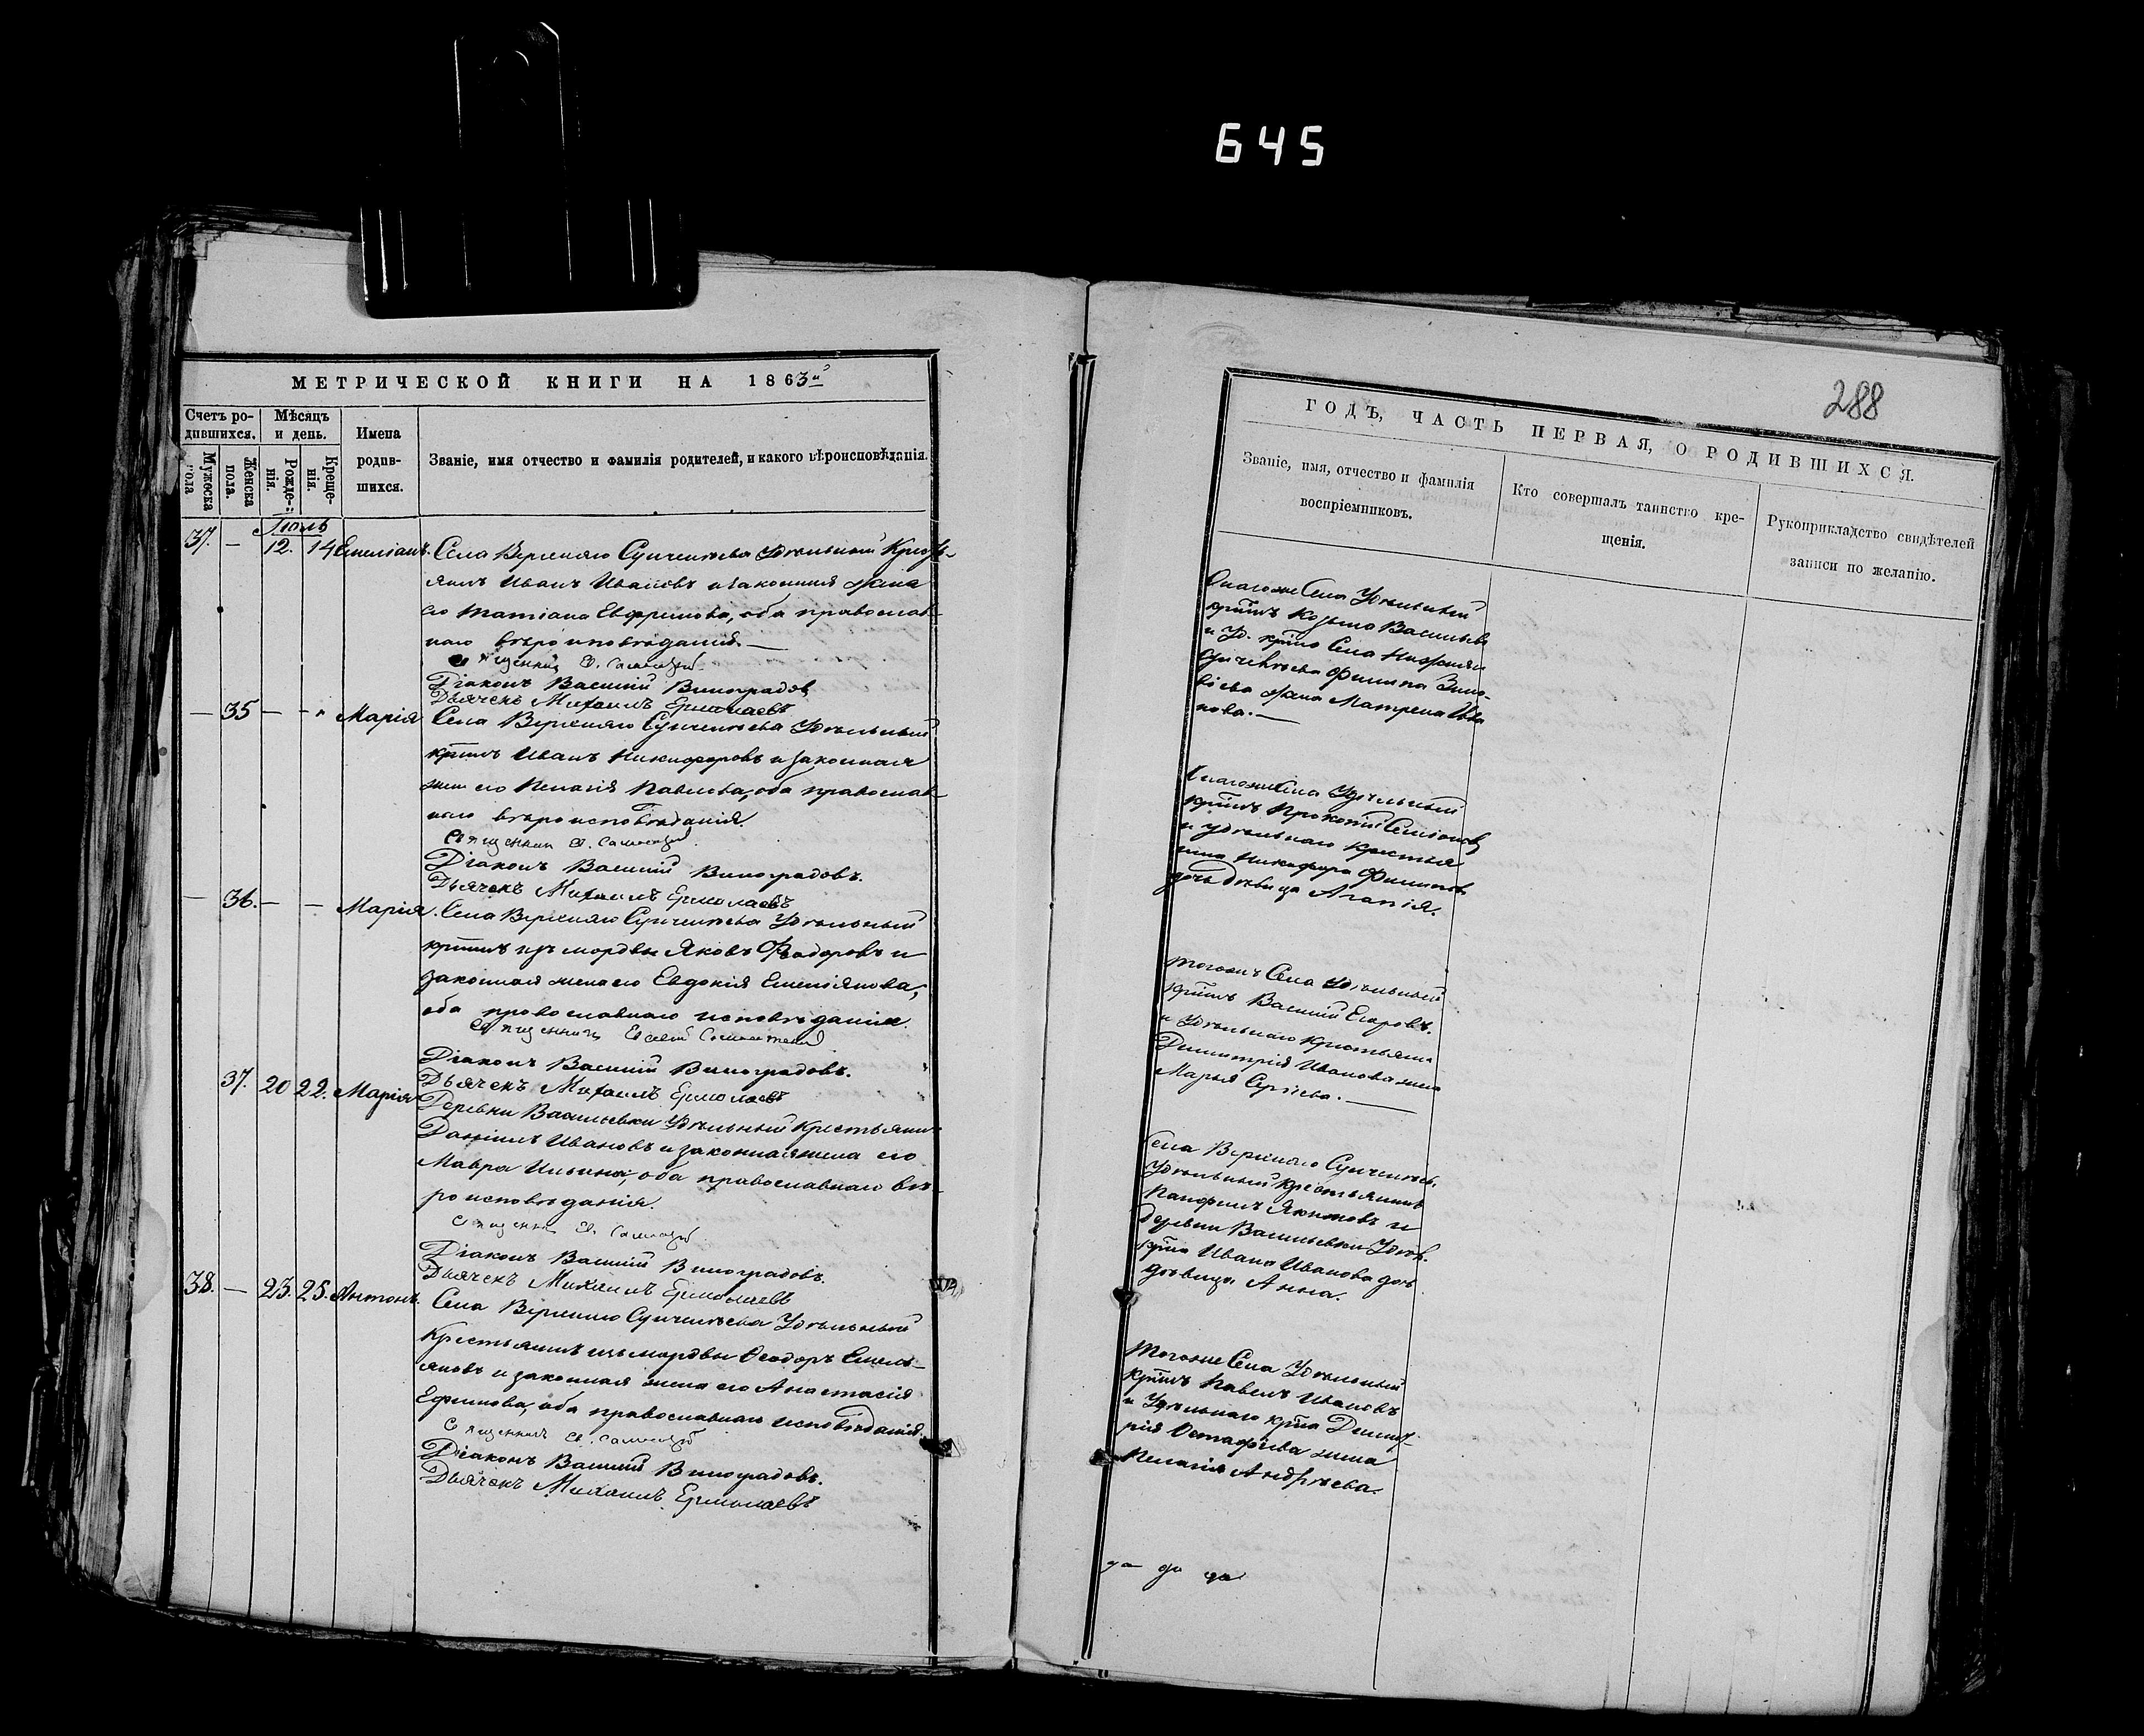 645
МЕТРИЧЕСКОЙ КНИГИ НА 1863й
Счетъ ро-
дившихся.
Мѣсяцъ
и день.
Имена
родив-
шихся.
Званіе, имя отчество и фамилія родителей, и какого вѣроисповѣданія.
Мужеска
пола
Женска
пола.
Рожде-
нія.
Креще-
нія.
Іюль
37. — 12. 14 Емеліанъ. Села Верхняго Удѣльный Крест-
янинъ Иванъ Ивановъ и законная жена
его Татіана Евфимова, оба православ-
наго вѣроисповѣданія. —
Священникъ
Діаконъ Василій Виноградовъ
Дьячекъ Михаилъ Ермолаевъ
— 35 — - " Марія Села Верхняго Удѣльный
крт̃нъ Иванъ Никифоровъ и законная
жена его Пелагія Павлова, оба православ-
наго вѣроисповѣданія.
Священникъ
Діаконъ Василій Виноградовъ.
Дьячекъ Михаилъ Ермолаевъ
— 36. — — Марія. Села Верхняго Удѣльный
крт̃нъ изъ мордвы Яковъ Ѳадоровъ и
законная жена его Евдокія Емеліянова,
оба православнаго исповѣданія.
Священникъ
Діаконъ Василій Виноградовъ.
Дьячекъ Михаилъ Ермолаевъ
37. 20 22. Марія Деревни Васильевки Удѣльный Крестьянинъ
Даніилъ Ивановъ и законная жена его
Мавра Ильина, оба православнаго вѣ-
роисповѣданія.
Священникъ
Діаконъ Василій Виноградовъ.
Дьячекъ Михаилъ Ермолаевъ
38. — 23. 25. Антонъ. Села Верхняго Удѣльный
Крестьянинъ изъ мордвы Ѳеодоръ Емель-
яновъ и законная жена его Анастасія
Ефимова, оба православнаго исповѣданія.
Священникъ
Діаконъ Василій Виноградовъ.
Дьячекъ Михаилъ Ермолаевъ
288
ГОДЪ, ЧАСТЬ ПЕРВАЯ, О РОДИВШИХСЯ.
Званіе, имя, отчество и фамилія
воспріемниковъ.
Кто совершалъ таинство кре-
щенія.
Рукоприкладство свидѣтелей
записи по желанію.
Села Удѣльный
крт̃нъ Козьма Васильевъ
и Уд. крт̃на Села
Филипа Зино-
віева жена Матрена Ива
нова. —
Удѣльный
крт̃нъ Прокопій
и удѣльнаго крестья
нина Никифора Филипова
дочь дѣвица Агапія.
Тогожъ Села Удѣльный
крт̃нъ Василій Егоровъ.
и Удѣльнаго крестьяни
Димитрія Иванова жена
Марья Сергіева. —
Села Верхняго
Удѣльный крестьянинъ
Панфилъ Якимовъ и
деревни Васильевки Удѣл.
крт̃на Ивана Иванова дочь
дѣвица Анна.
Тогоже Села Удѣльный
крт̃нъ Павелъ Ивановъ
и Удѣльнаго крт̃на Димит-
рія Остафіева жена
Пелагія Андрѣева.
да да да